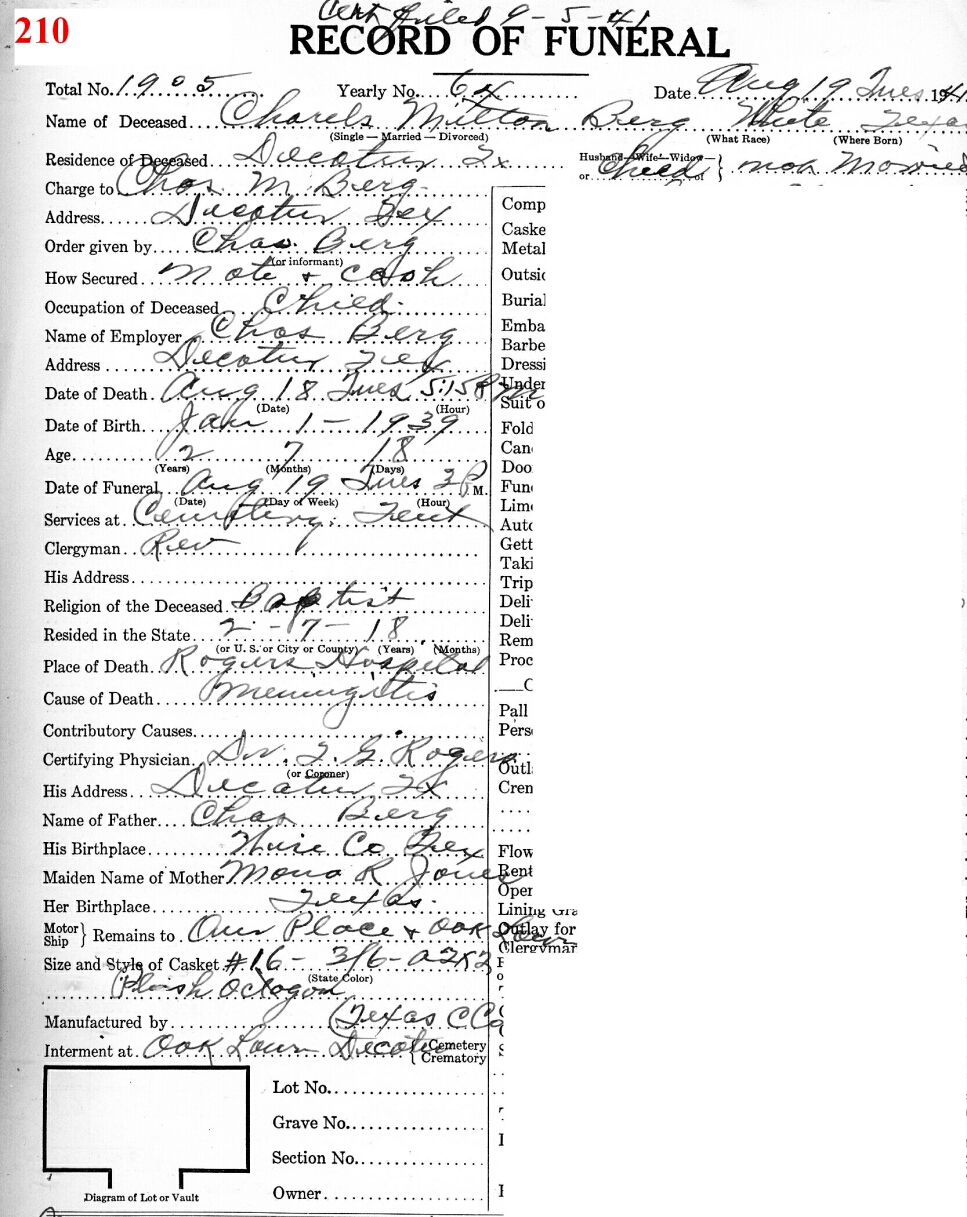 Cert filed 9-5-41
210
RECORD OF FUNERAL
Total No. 1905 Yearly No. 64 Date Aug 19 Tues 1941
Name of Deceased Charels Milton Berg White Texas
(Single — Married — Divorced) (What Race) (Where Born)
Residence of Deceased Decatur Tx Husband—Wife—Widow— or of } Child not Married
Charge to Chas M. Berg
Address Decatur Tex
Order given by Chas. Berg
(or informant)
How Secured Note + Cash
Occupation of Deceased Chied
Name of Employer Chas Berg
Address Decatur Tex
Date of Death Aug 18 Tues 5:15 PM
(Date) (Hour)
Date of Birth Jan 1 - 1939
Age 2 7 18
(Years) (Months) (Days)
Date of Funeral Aug 19 Tues 3 P.M.
(Date) (Day of Week) (Hour)
Services at Cemetery Tent
Clergyman Rev
His Address
Religion of the Deceased Baptist
Resided in the State 2-7-18
(or U. S. or City or County) (Years) (Months)
Place of Death Rogers Hospital
Cause of Death Meningitis
Contributory Causes
Certifying Physician Dr. T. G. Rogers
(or Coroner)
His Address Decatur Tx
Name of Father Chas Berg
His Birthplace Wise Co Tex
Maiden Name of Mother Mona R Jones
Her Birthplace Texas
Motor Ship } Remains to Our Place + Oak Lawn
Size and Style of Casket #16 - 3/6 -
(State Color)
Plush Octogon
Manufactured by (Texas C Co
Interment at Oak Lawn Decatur { Cemetery Crematory
Lot No.
Grave No.
Section No.
Owner
Diagram of Lot or Vault
Comp
Caske
Metal
Outsid
Burial
Emba
Barbe
Dressi
Under
Suit o
Fold
Can
Doo
Fun
Lim
Auto
Gett
Taki
Trip
Deli
Deli
Rem
Proc
C
Pall
Pers
Outl
Crem
Flow
Rent
Oper
Lining Gra
Outlay for
Clergyman